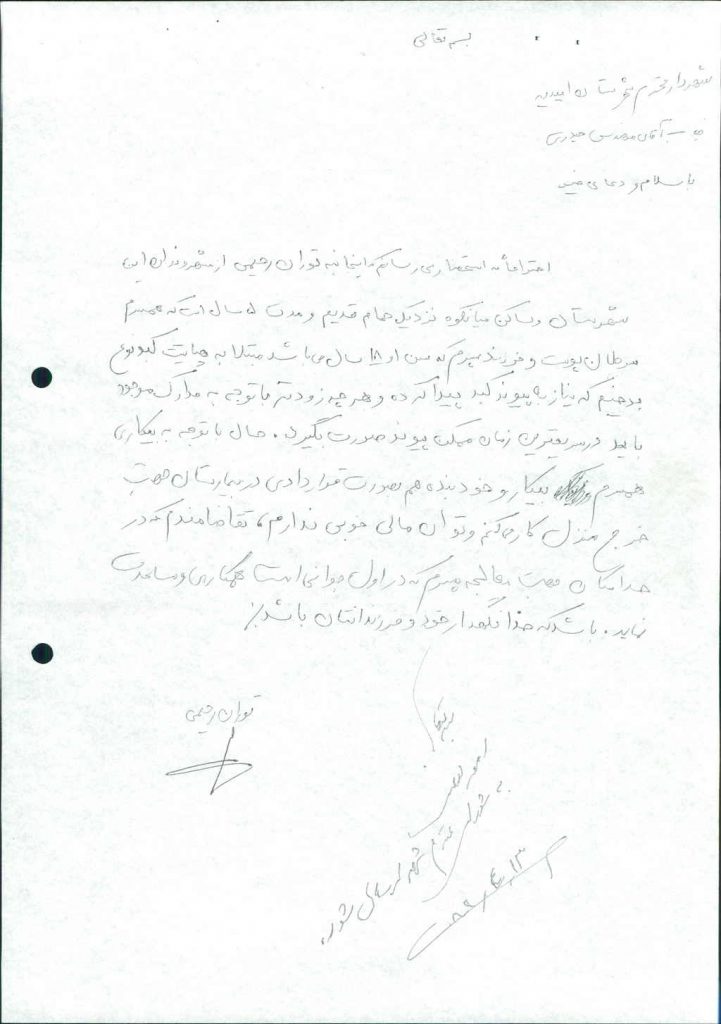 بسمه تعالی
شهردار محترم شهرستان امیدیه
جناب آقای مهندس حیدری
با سلام و دعای خیر
احتراماً به استحضار می رسانم اینجانبه توران رحیمی از شهروندان این
شهرستان و ساکن میانکوه نزدیک حمام قدیم و مدت ۵ سال است که همسرم
سرطان پوست و فرزند پسرم که سن او ۱۸ سال می باشد مبتلا به هپاتیت کبد نوع
بدخیم که نیاز به پیوند کبد پیدا کرده و هر چه زودتر با توجه به مدارک موجود
باید در سریعترین زمان ممکن پیوند صورت بگیرد. حال با توجه به بیکاری
همسرم بیکار و خود بنده هم بصورت قراردادی در بیمارستان جهت
خرج منزل کار می کنم و توان مالی خوبی ندارم، تقاضامندم که در
حد امکان جهت معالجه پسرم که در اول جوانی است همکاری و مساعدت
نماید. باشد که خدا نگهدار خود و فرزندانتان باشد./
توران رحیمی
به شورای محترم شهر ارسال شود.